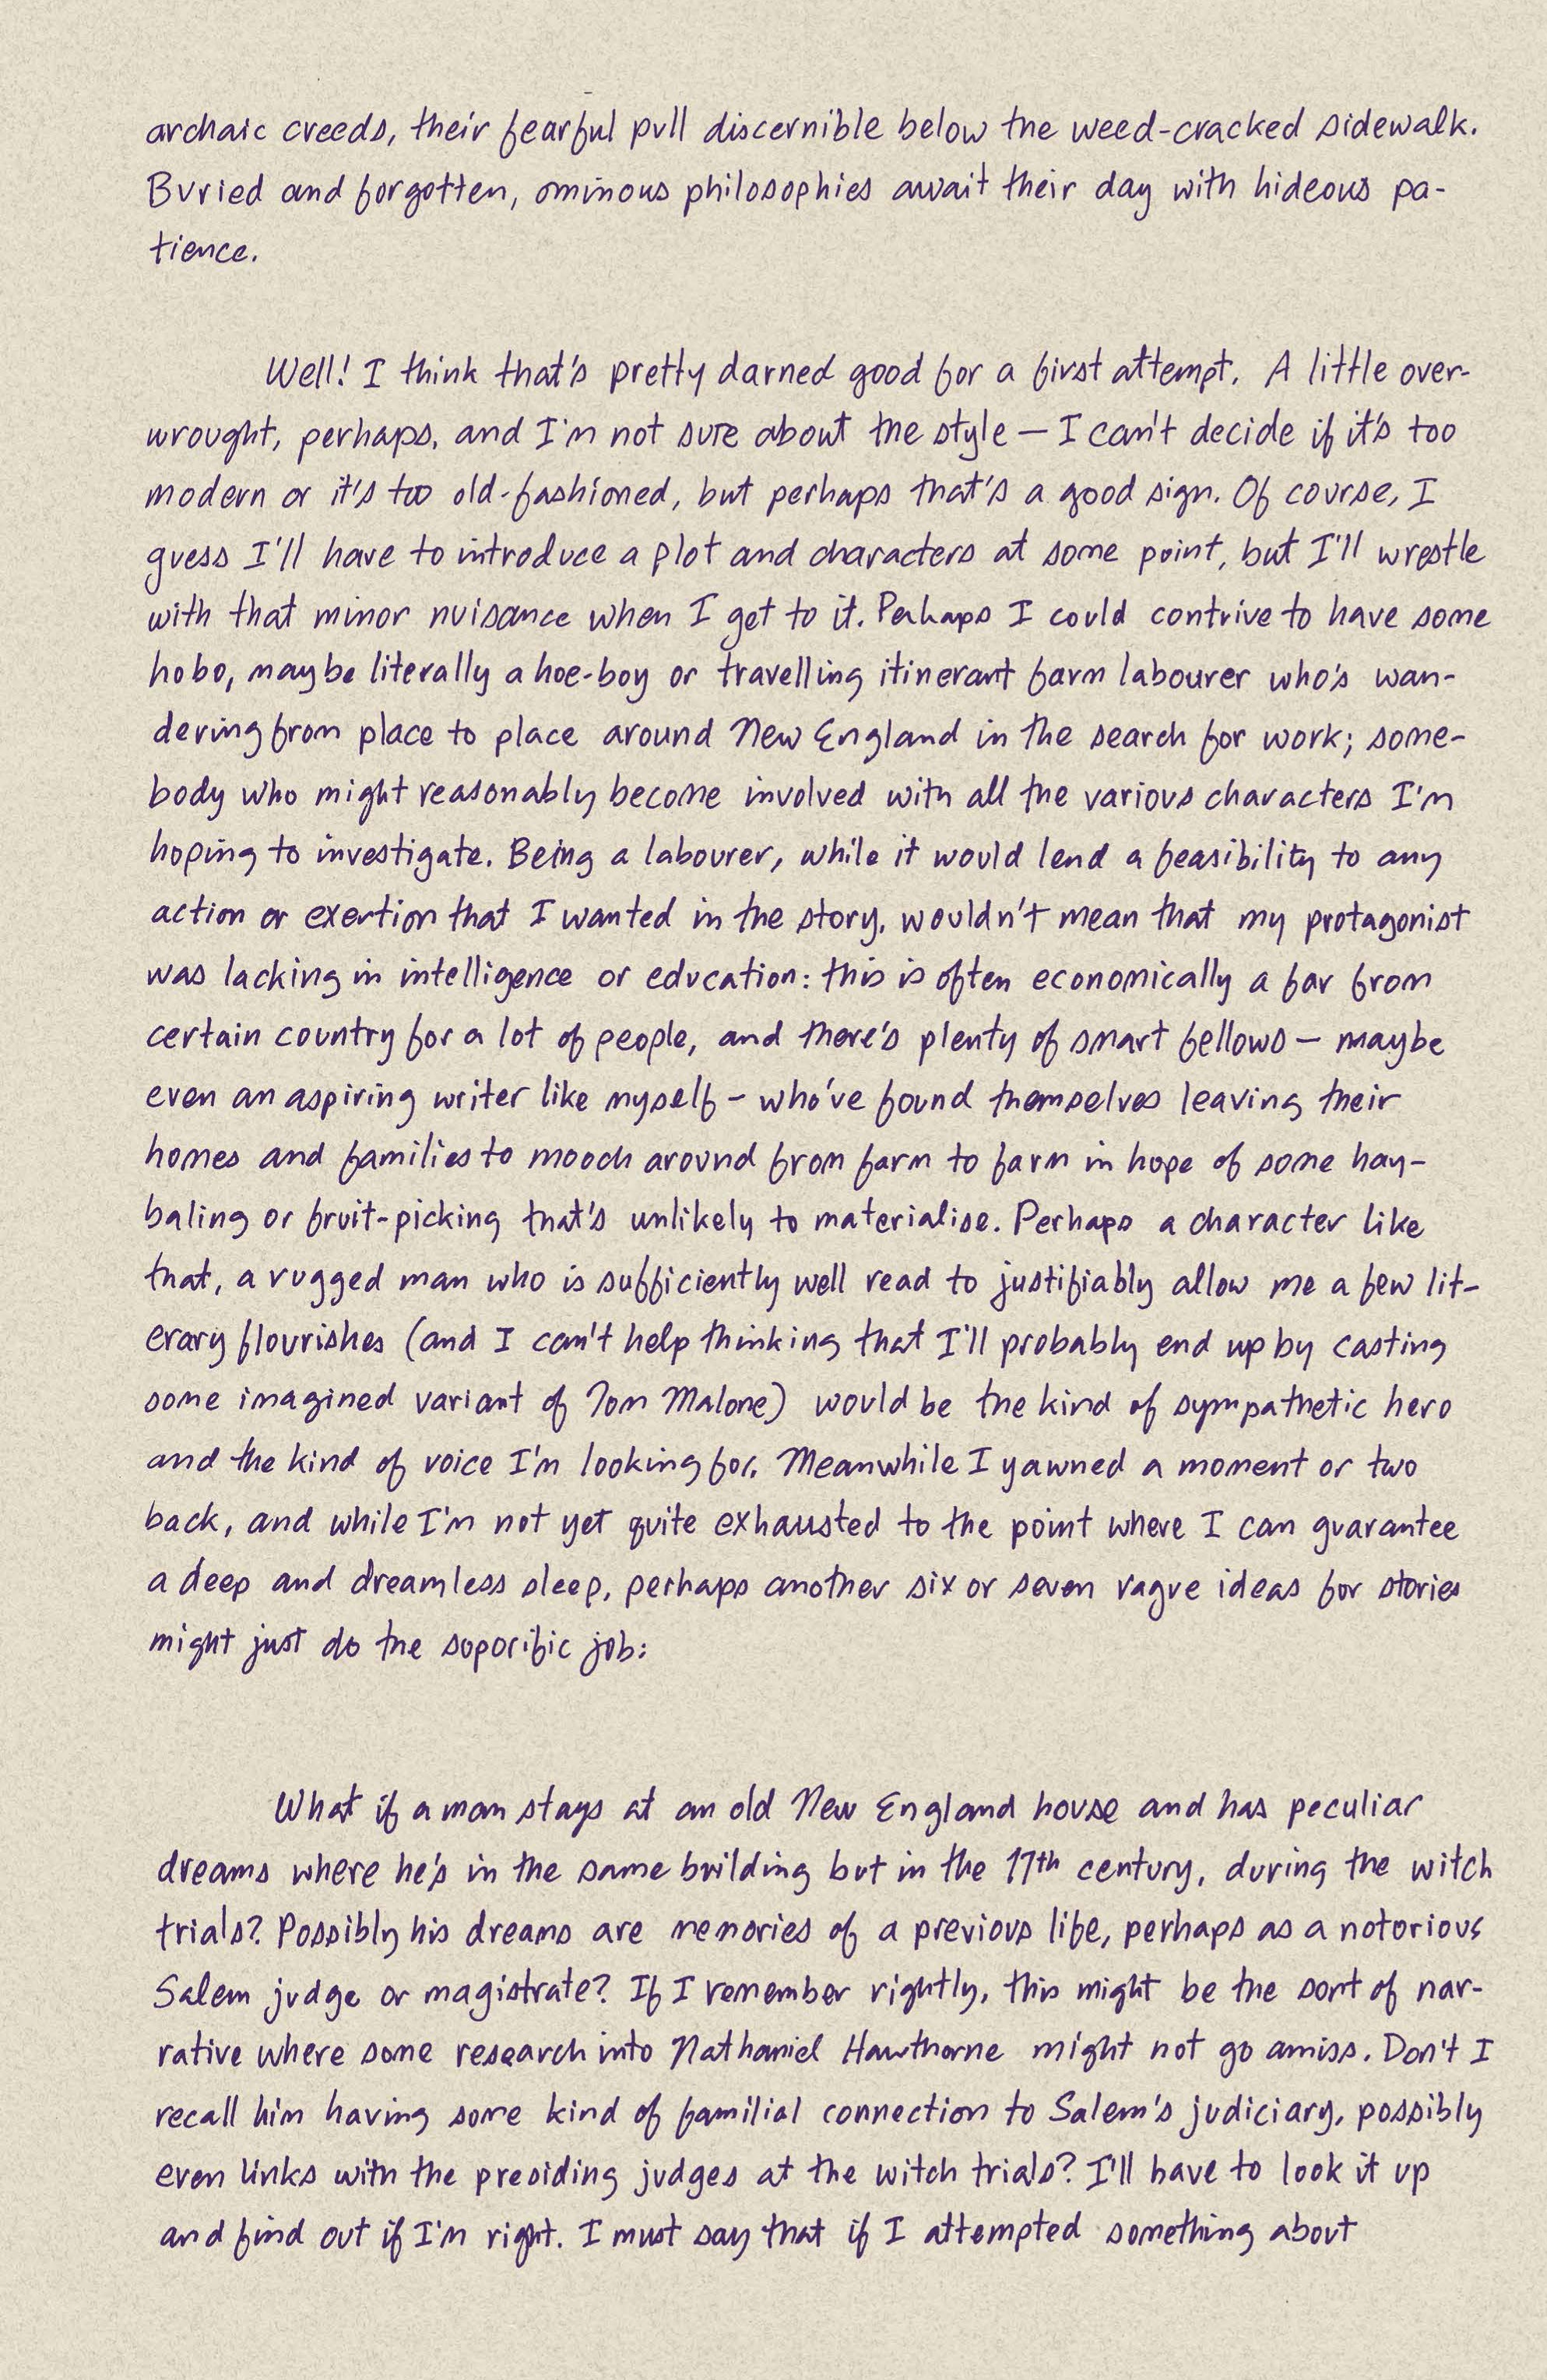 archaic creeds, their fearful pull discernible below the weed-cracked sidewalk.
Buried and forgotten, ominous philosophies await their day with hideous pa-
tience.
Well! I think that's pretty darned good for a first attempt. A little over-
wrought, perhaps, and I'm not sure about the style — I can't decide if it's too
modern or it's too old-fashioned, but perhaps that's a good sign. Of course, I
guess I'll have to introduce a plot and characters at some point, but I'll wrestle
with that minor nuisance when I get to it. Perhaps I could contrive to have some
hobo, maybe literally a hoe-boy or travelling itinerant farm labourer who's wan-
dering from place to place around New England in the search for work; some-
body who might reasonably become involved with all the various characters I'm
hoping to investigate. Being a labourer, while it would lend a feasibility to any
action or exertion that I wanted in the story, wouldn't mean that my protagonist
was lacking in intelligence or education: this is often economically a far from
certain country for a lot of people, and there's plenty of smart fellows — maybe
even an aspiring writer like myself — who've found themselves leaving their
homes and families to mooch around from farm to farm in hope of some hay-
baling or fruit-picking that's unlikely to materialise. Perhaps a character like
that, a rugged man who is sufficiently well read to justifiably allow me a few lit-
erary flourishes (and I can't help thinking that I'll probably end up by casting
some imagined variant of Tom Malone) would be the kind of sympathetic hero
and the kind of voice I'm looking for. Meanwhile I yawned a moment or two
back, and while I'm not yet quite exhausted to the point where I can guarantee
a deep and dreamless sleep, perhaps another six or seven vague ideas for stories
might just do the soporific job:
What if a man stays at an old New England house and has peculiar
dreams where he's in the same building but in the 17th century, during the witch
trials? Possibly his dreams are memories of a previous life, perhaps as a notorious
Salem judge or magistrate? If I remember rightly, this might be the sort of nar-
rative where some research into Nathaniel Hawthorne might not go amiss. Don't I
recall him having some kind of familial connection to Salem's judiciary, possibly
even links with the presiding judges at the witch trials? I'll have to look it up
and find out if I'm right. I must say that if I attempted something about